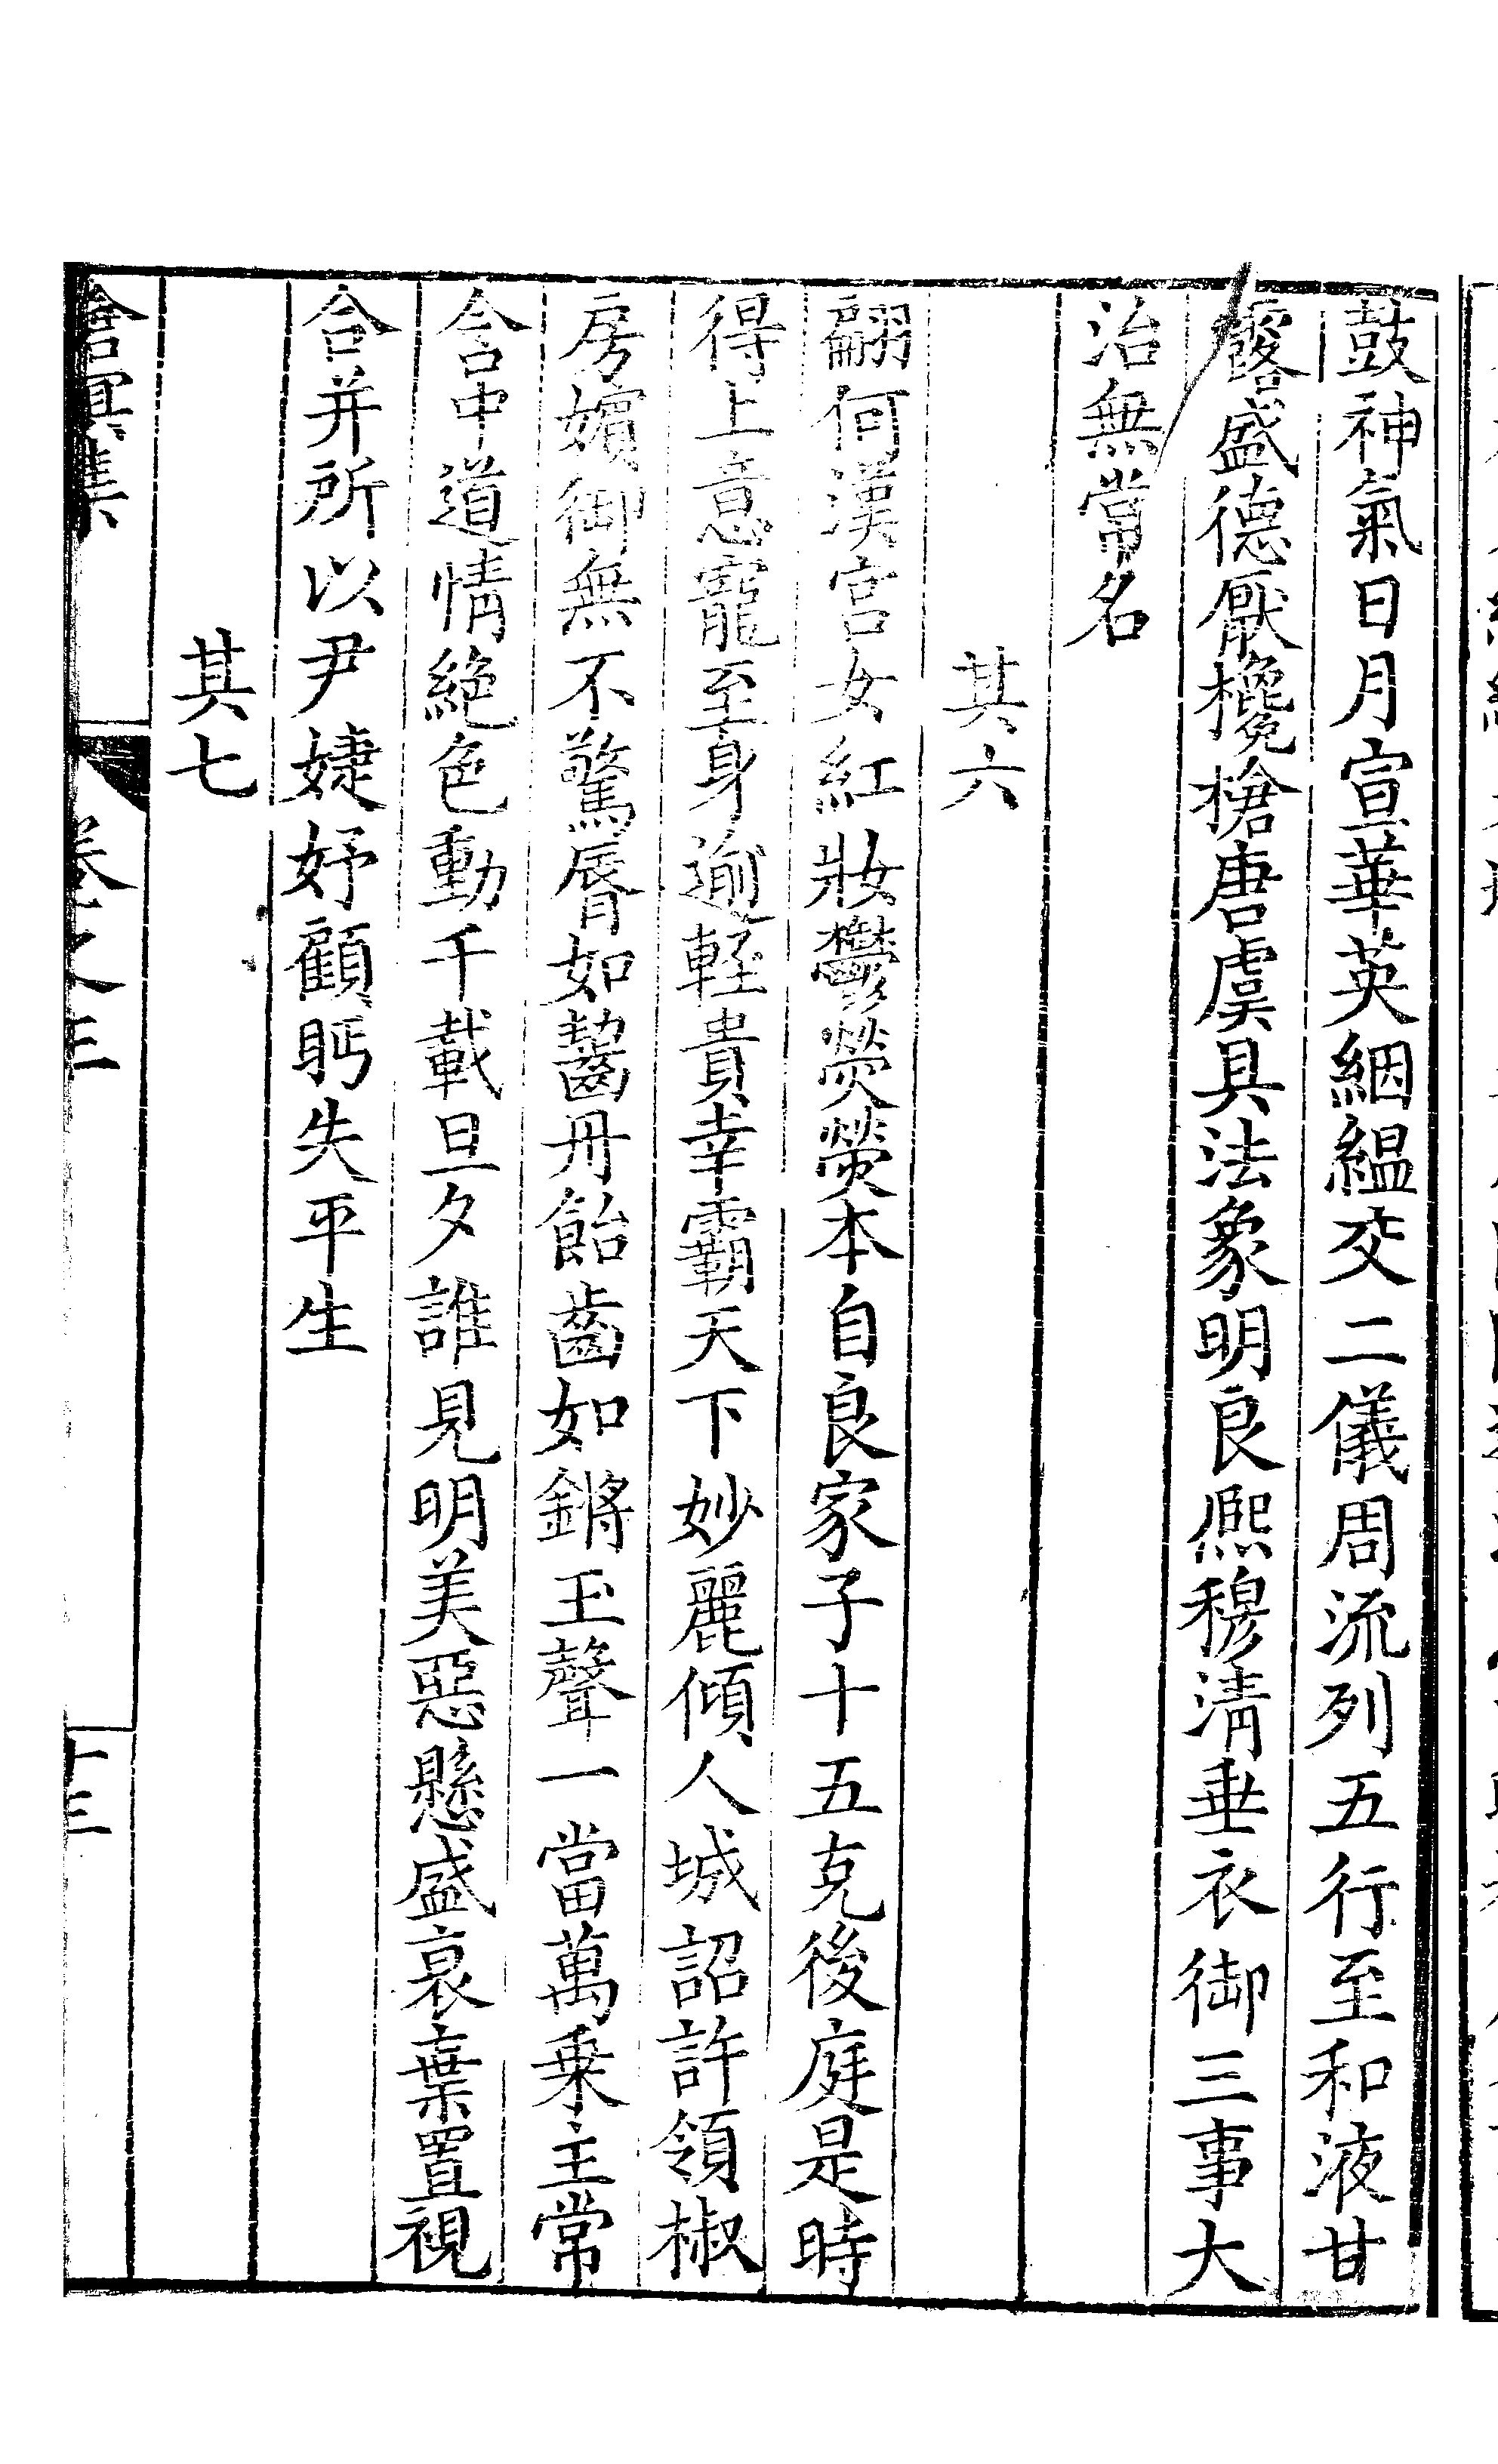 鼓神氣日月宣華英絪縕交二儀周流列五行至和液甘
露盛德厭欃槍唐虞具法象明良熈穆清垂衣御三事大
治無常名
其六
翩何漢宮女紅妝鬱熒熒本自良家子十五充後庭是時
得上意寵至身逾輕貴幸霸天下妙麗傾人城詔許領椒
房嬪御無不驚脣如齧丹飴齒如鏘玉聲一當萬乗主常
含中道情絶色動千載旦夕誰見明美惡懸盛衰棄置視
合并所以尹婕妤顧眄失平生
其七
卷之三
十三